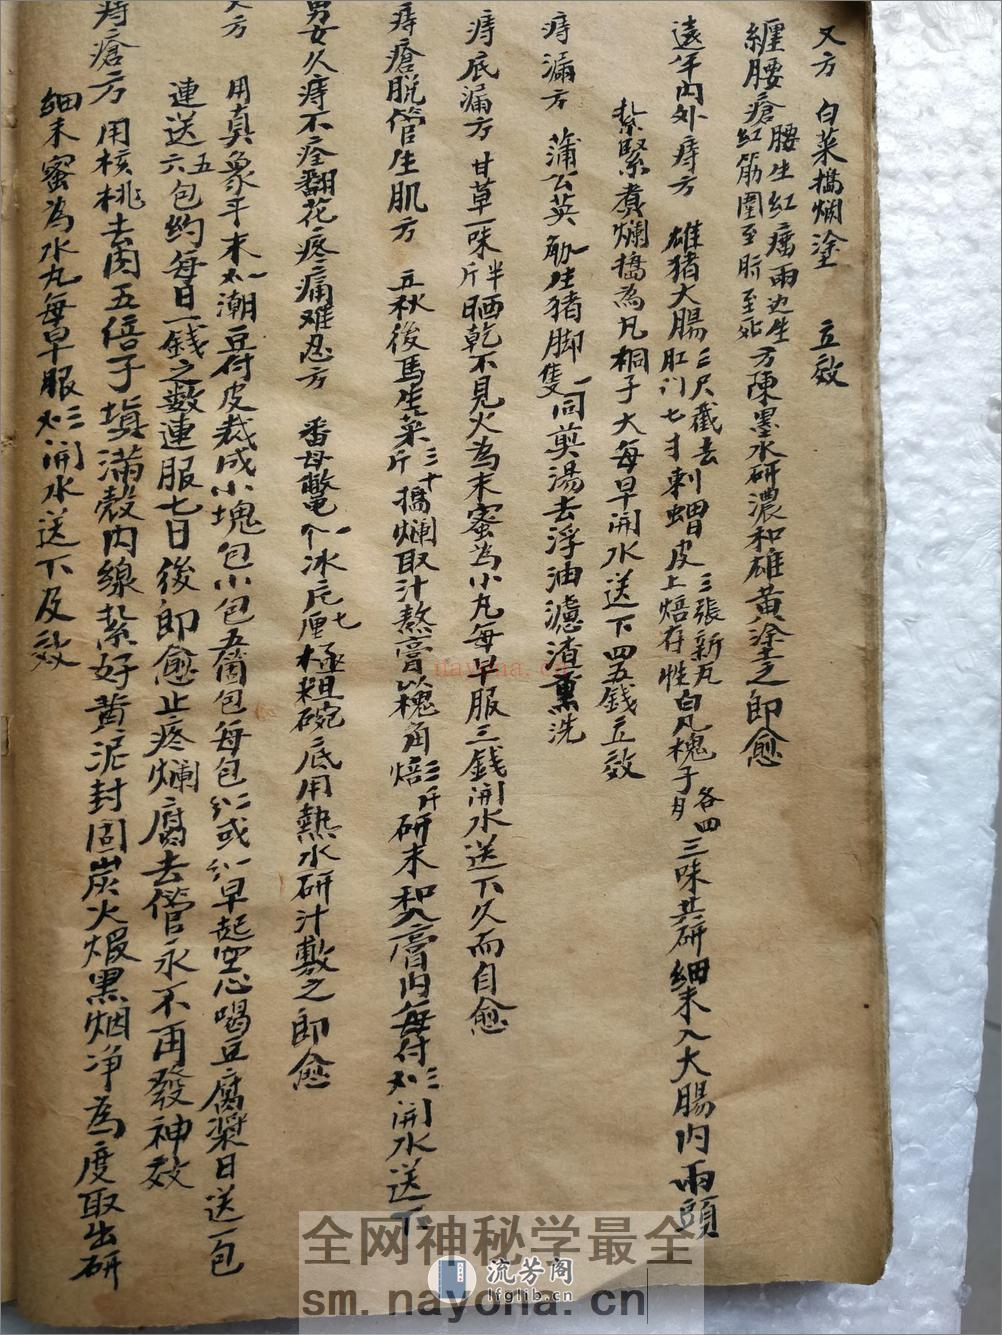 又方 白菜搗爛塗 立效
纏腰瘡 腰生紅瘰兩边生紅筋圍至臍至 方陳墨水研濃和雄黃塗之即愈
遠年內外痔方 雄猪大腸三尺截去肛门七寸刺蝟皮三張新瓦上焙存性白凡槐子各四 三味共研細末入大腸內兩頭
紮緊煮爛搗為凡桐子大每早開水送下四五錢立效
痔漏方 蒲公英 猪脚一隻同煎湯去浮油濾渣熏洗
痔底漏方 甘草一味半斤晒乾不見火為末蜜為小丸每早服三錢開水送下久而自愈
痔瘡脫管生肌方 立秋後馬生菜三十斤搗爛取汁熬膏以槐角焙 斤研末和入膏內每付 開水送下
男女久痔不痊翻花疼痛难忍方 番母鱉一个冰片七厘極粗碗底用熱水研汁敷之即愈
又方 用真象牙末 潮豆付皮裁成小塊包小包五箇包每包 或 早起空心喝豆腐漿日送一包
連送五六包約每日一錢之數連服七日後即愈止疼爛腐去管永不再發神效
痔瘡方 用核桃去肉五倍子填滿殼內線紮好黃泥封固炭火煅黑烟净為度取出研
細末蜜為水丸每早服 開水送下及效
nayona.cn
全网神秘学最全
流芳阁
lfglib.cn
sm.nayona.cn